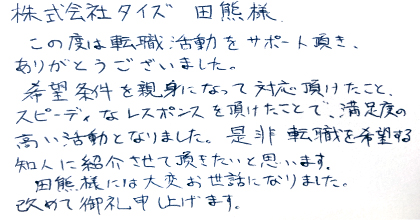 株式会社タイズ 田熊様
この度は転職活動をサポート頂き、
ありがとうございました。
希望条件を親身になって対応頂けたこと、
スピーディなレスポンスを頂けたことで、満足度の
高い活動となりました。是非転職を希望する
知人に紹介させて頂きたいと思います。
田熊様には大変お世話になりました。
改めて御礼申し上げます。